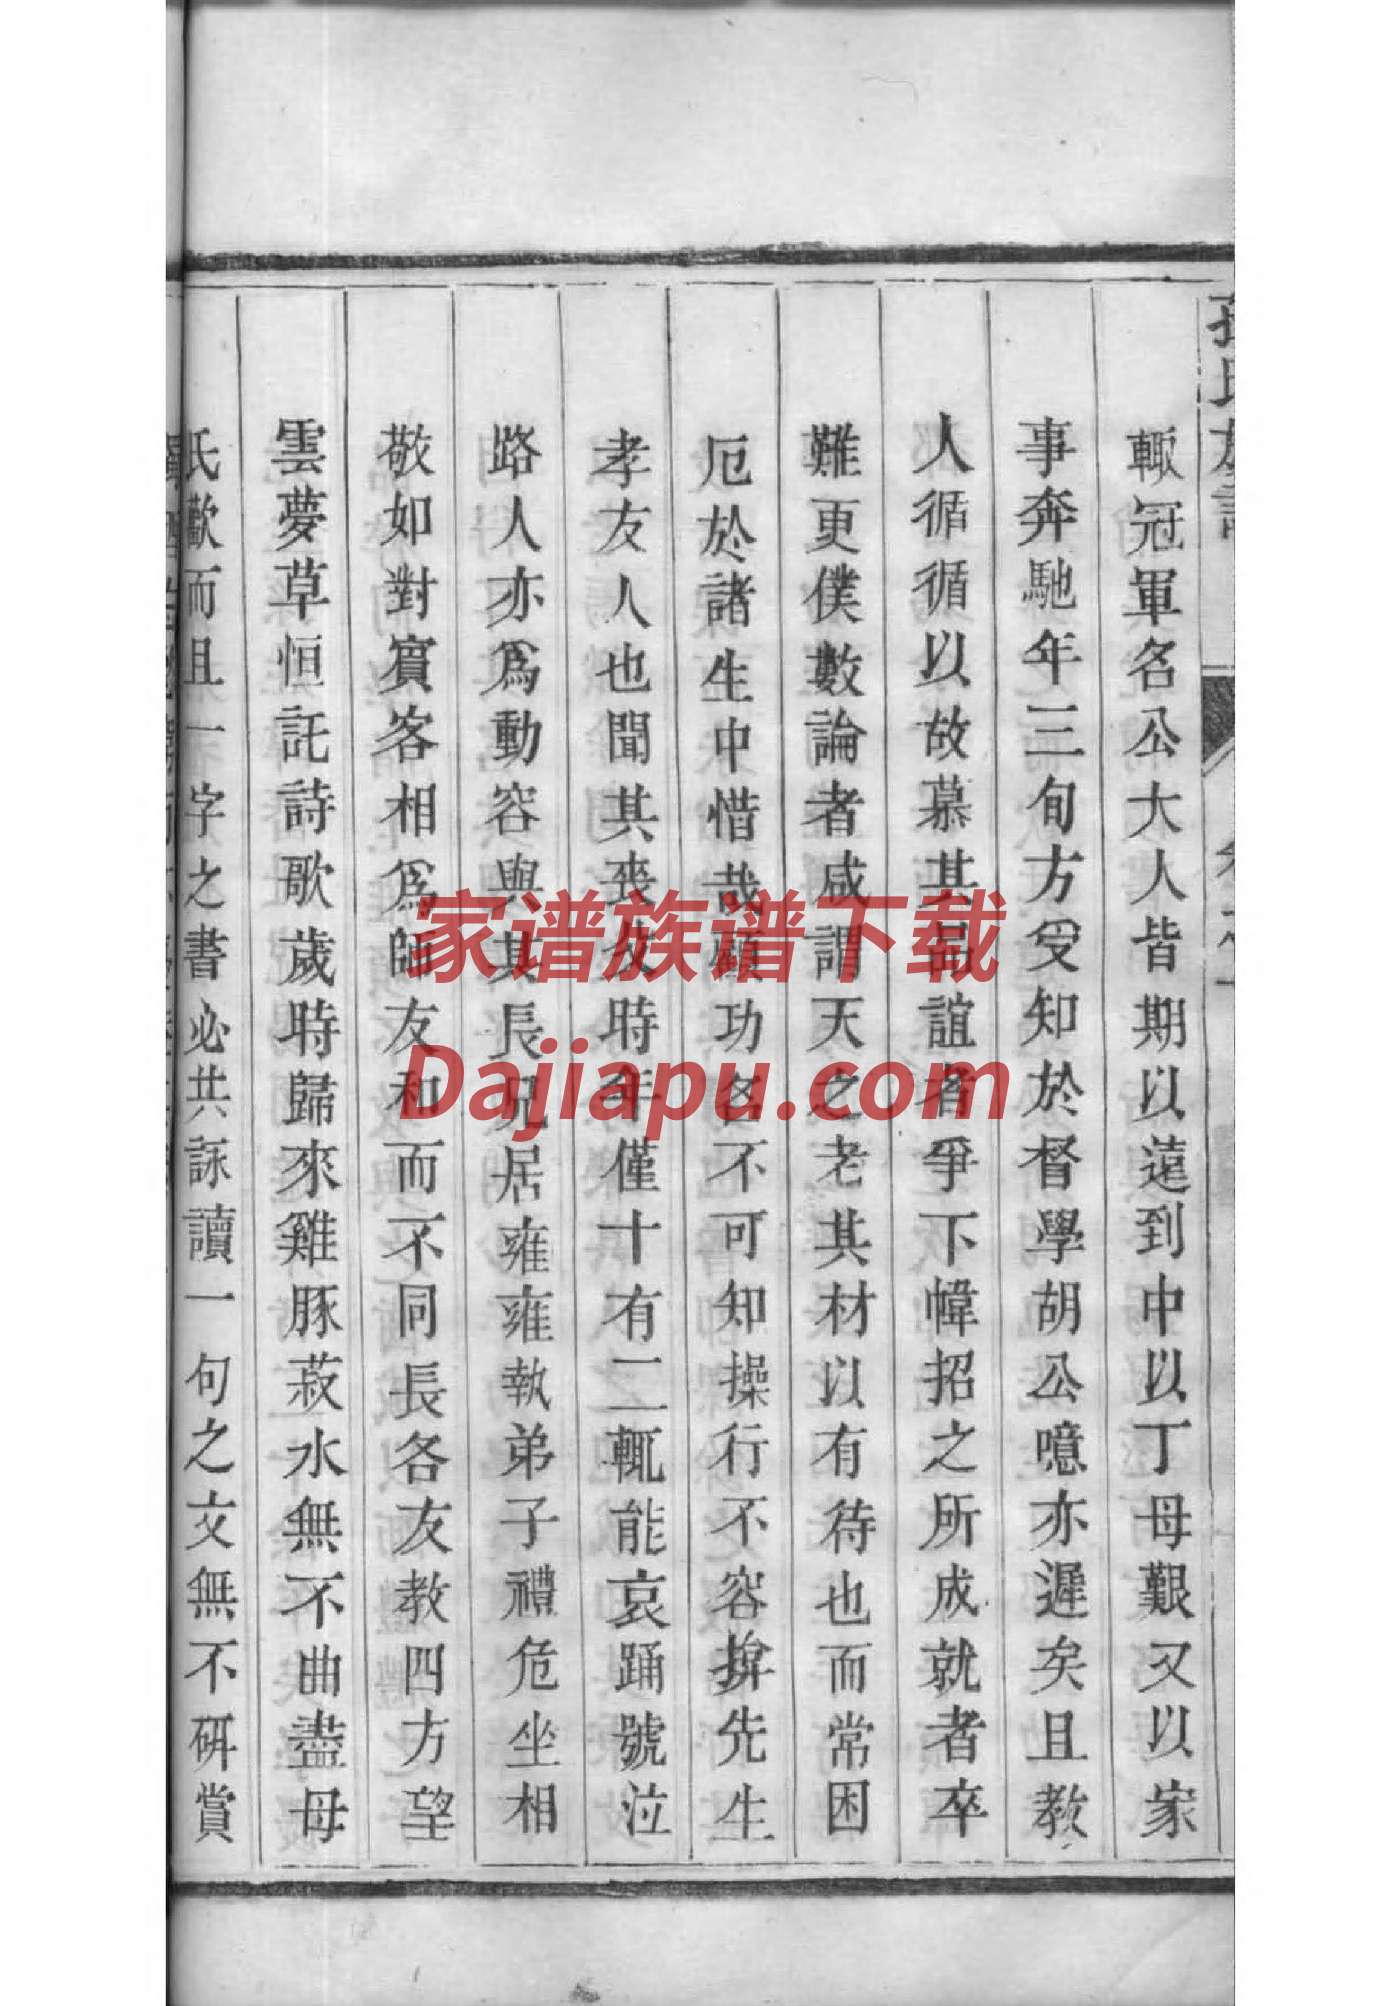 孫氏族譜
卷之一
輙冠軍名公大人皆期以遠到中以丁母艱又以家
事奔馳年三旬方受知於督學胡公噫亦遲矣且教
人循循以故慕其品誼者爭下幃招之所成就者卒
難更僕數論者咸謂天之老其材以有待也而常困
厄於諸生中惜哉顧功名不可知操行不容揜先生
孝友人也聞其喪父時年僅十有二輒能哀踊號泣
路人亦爲動容與其長兄居雍雍執弟子禮危坐相
敬如對賓客相爲師友和而不同長各友教四方望
雲夢草恒託詩歌歲時歸來雞豚菽水無不曲盡母
氏歡而且一字之書必共詠讀一句之文無不硏賞
家谱族谱下载
Dajiapu.com